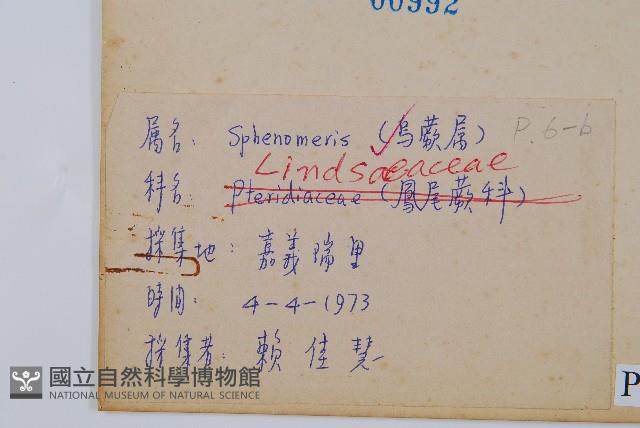 00992
属名: Sphenomeris (烏蕨属) P. 6-b
Lindsaeaceae
科名: Pteridiaceae (鳳尾蕨科)
採集地: 嘉義瑞里
時间: 4-4-1973
採集者: 賴佳慧
國立自然科學博物館
NATIONAL MUSEUM OF NATURAL SCIENCE
P